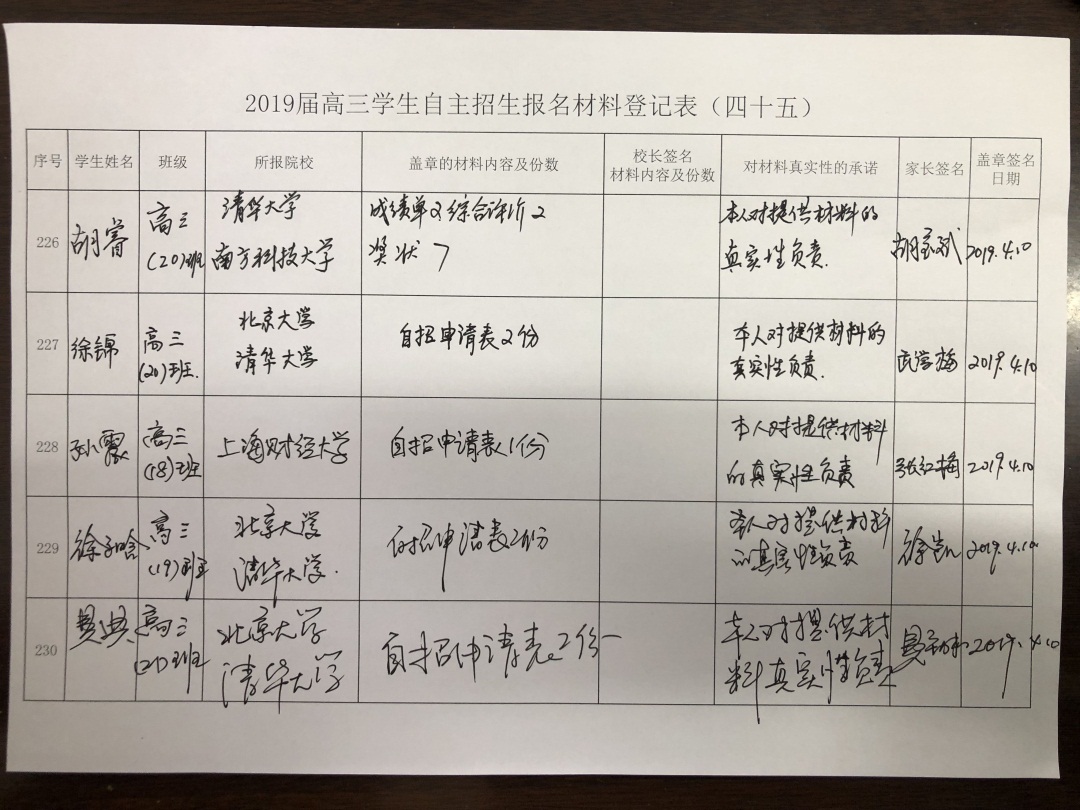 2019届高三学生自主招生报名材料登记表（四十五）
序号 学生姓名 班级 所报院校 盖章的材料内容及份数 校长签名 材料内容及份数 对材料真实性的承诺 家长签名 盖章签名 日期
226 胡睿 高三 (20)班 清华大学 南方科技大学 成绩单2 综合评价2 奖状7 本人对提供材料的 真实性负责. 2019.4.10
227 徐锦 高三 (20)班. 北京大学 清华大学 自招申请表2份 本人对提供材料的 真实性负责. 2019.4.10
228 孙震 高三 (18)班 上海财经大学 自招申请表1份 本人对提供材料 的真实性负责 张红梅 2019.4.10
229 徐子晗 高三 (19)班 北京大学 清华大学. 自招申请表2份 本人对提供材料 的真实性负责 2019.4.10
230 高三 (21)班 北京大学 清华大学 自招申请表2份 本人对提供材 料真实性负责 2019.4.10